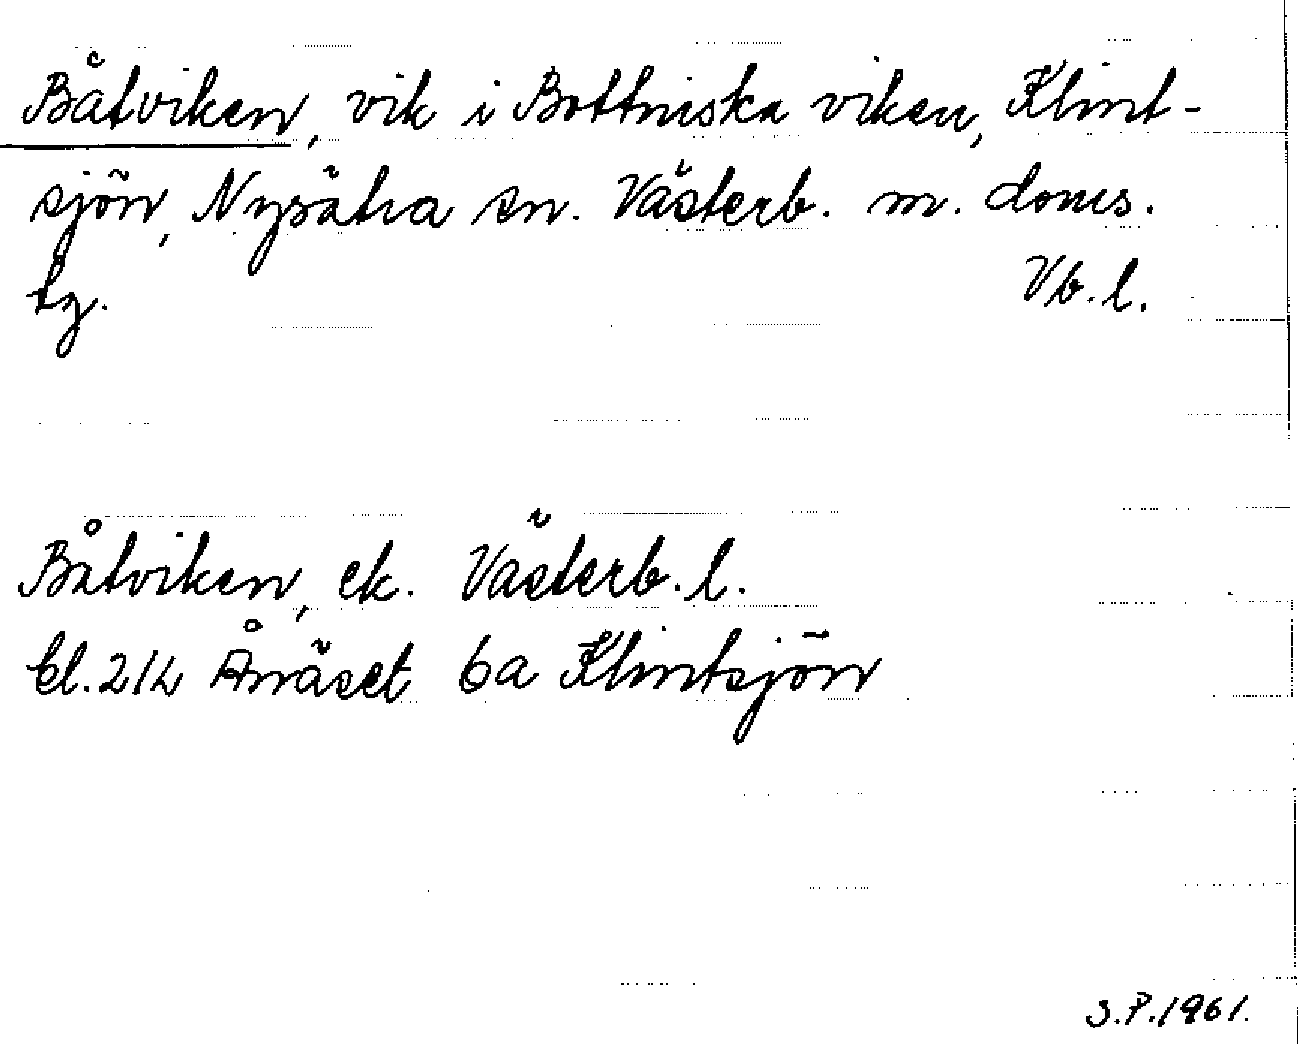 Båtviken, vik i Bottniska viken, Klint-
sjön, Nysätra sn. Västerb. m. doms.
tg. Vb. l.
Båtviken, ek. Västerb. l.
bl. 214 Ånäset 6a Klintsjön
S.P. 1961.